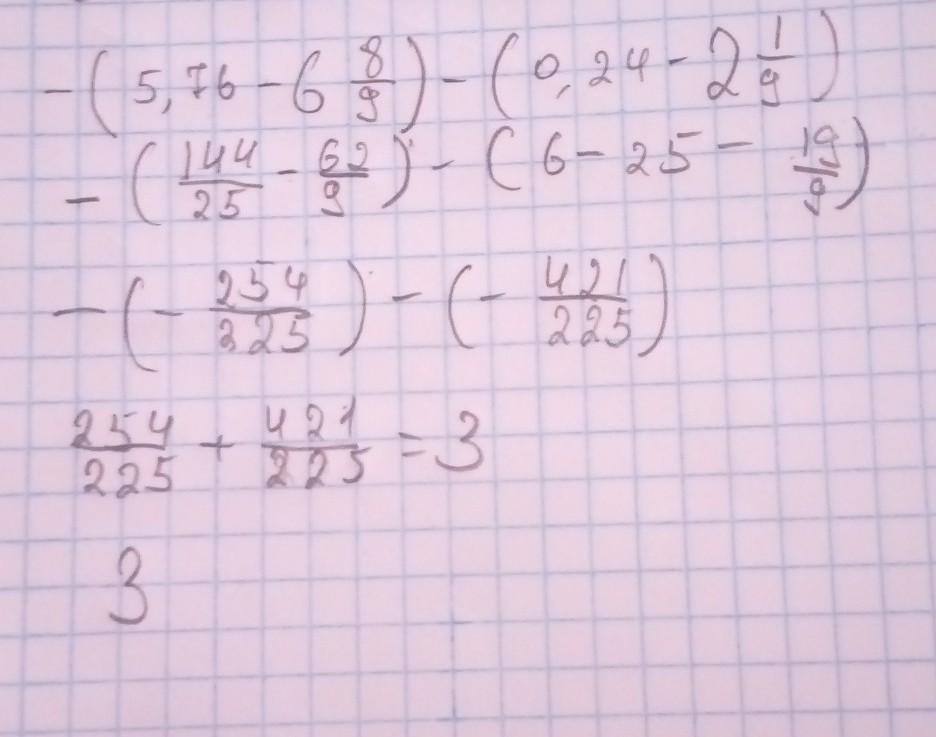 -(5,76-6 8/9)-(0,24-2 1/9)
-(144/25-62/9)-(6-25-19/9)
-(-254/225)-(-421/225)
254/225+421/225=3
3